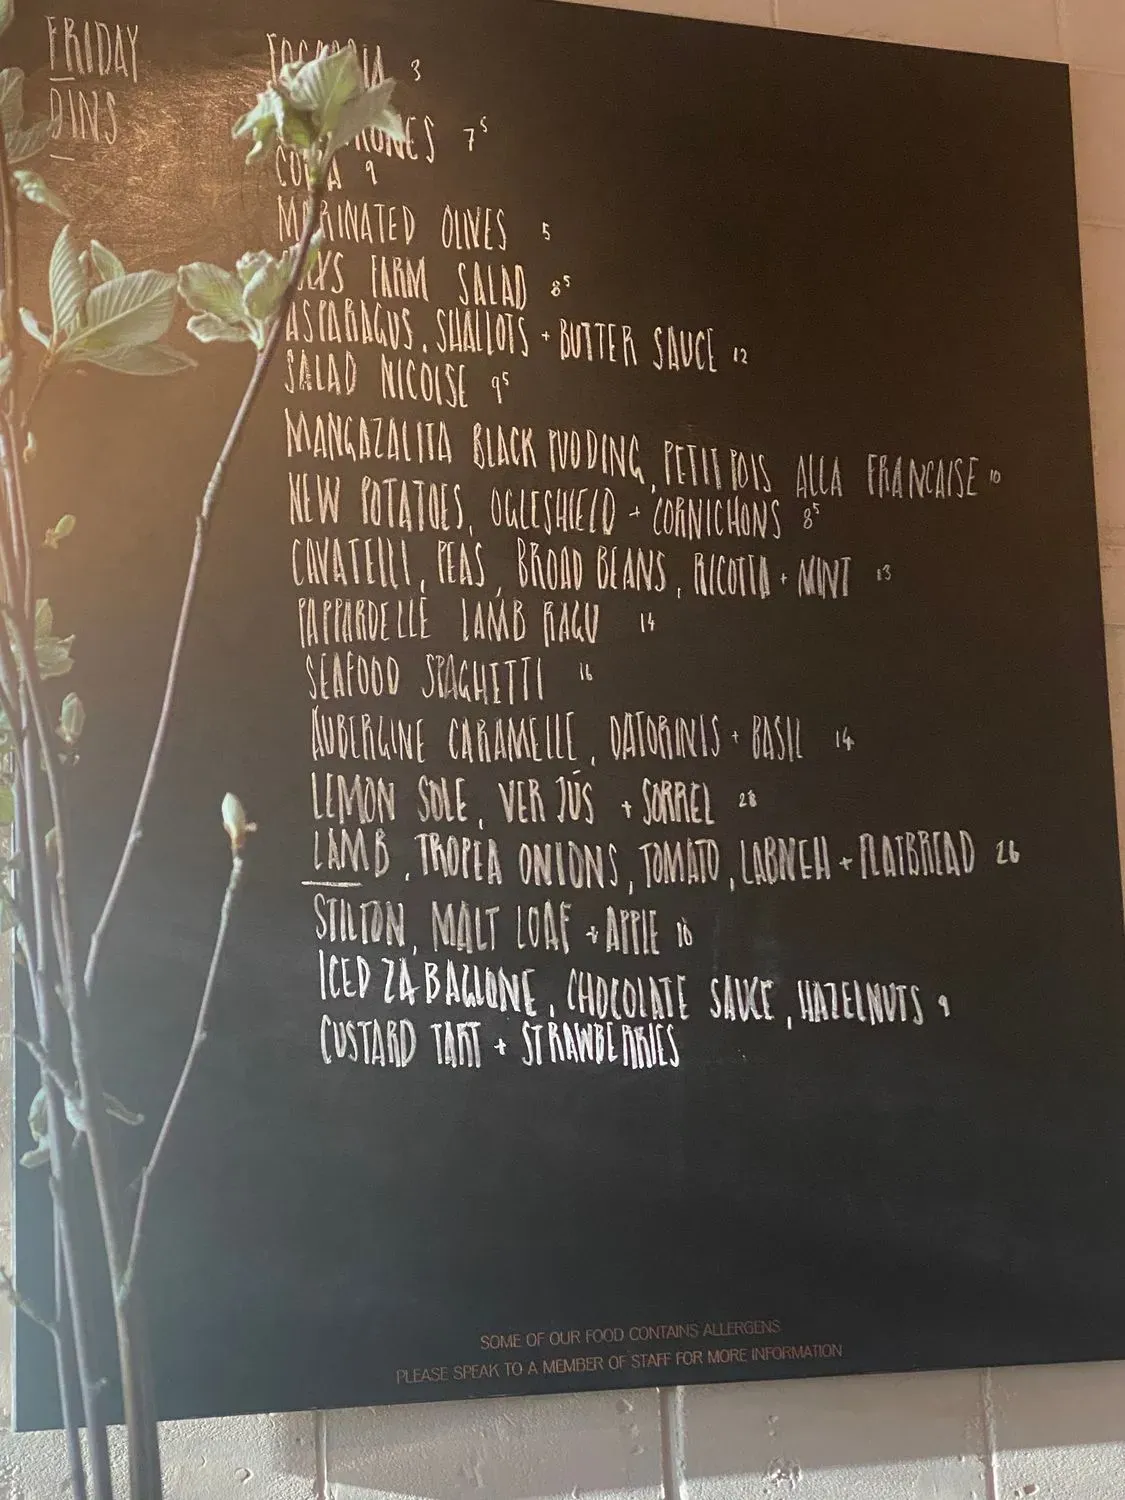 FRIDAY
DINS
3
7⁵
COPPA 9
MARINATED OLIVES 5
FARM SALAD 8⁵
ASPARAGUS, SHALLOTS + BUTTER SAUCE 12
SALAD NICOISE 9⁵
MANGAZALITA BLACK PUDDING, PETIT POIS ALLA FRANCAISE 10
NEW POTATOES, OGLESHIELD + CORNICHONS 8⁵
CAVATELLI, PEAS, BROAD BEANS, RICOTTA + MINT 13
PAPPARDELLE LAMB RAGU 14
SEAFOOD SPAGHETTI 16
AUBERGINE CARAMELLE, DATORINIS + BASIL 14
LEMON SOLE, VER JUS + SORREL 28
LAMB, TROPEA ONIONS, TOMATO, LABNEH + FLATBREAD 26
STILTON, MALT LOAF + APPLE 10
ICED ZABAGLIONE, CHOCOLATE SAUCE, HAZELNUTS 9
CUSTARD TART + STRAWBERRIES
SOME OF OUR FOOD CONTAINS ALLERGENS
PLEASE SPEAK TO A MEMBER OF STAFF FOR MORE INFORMATION